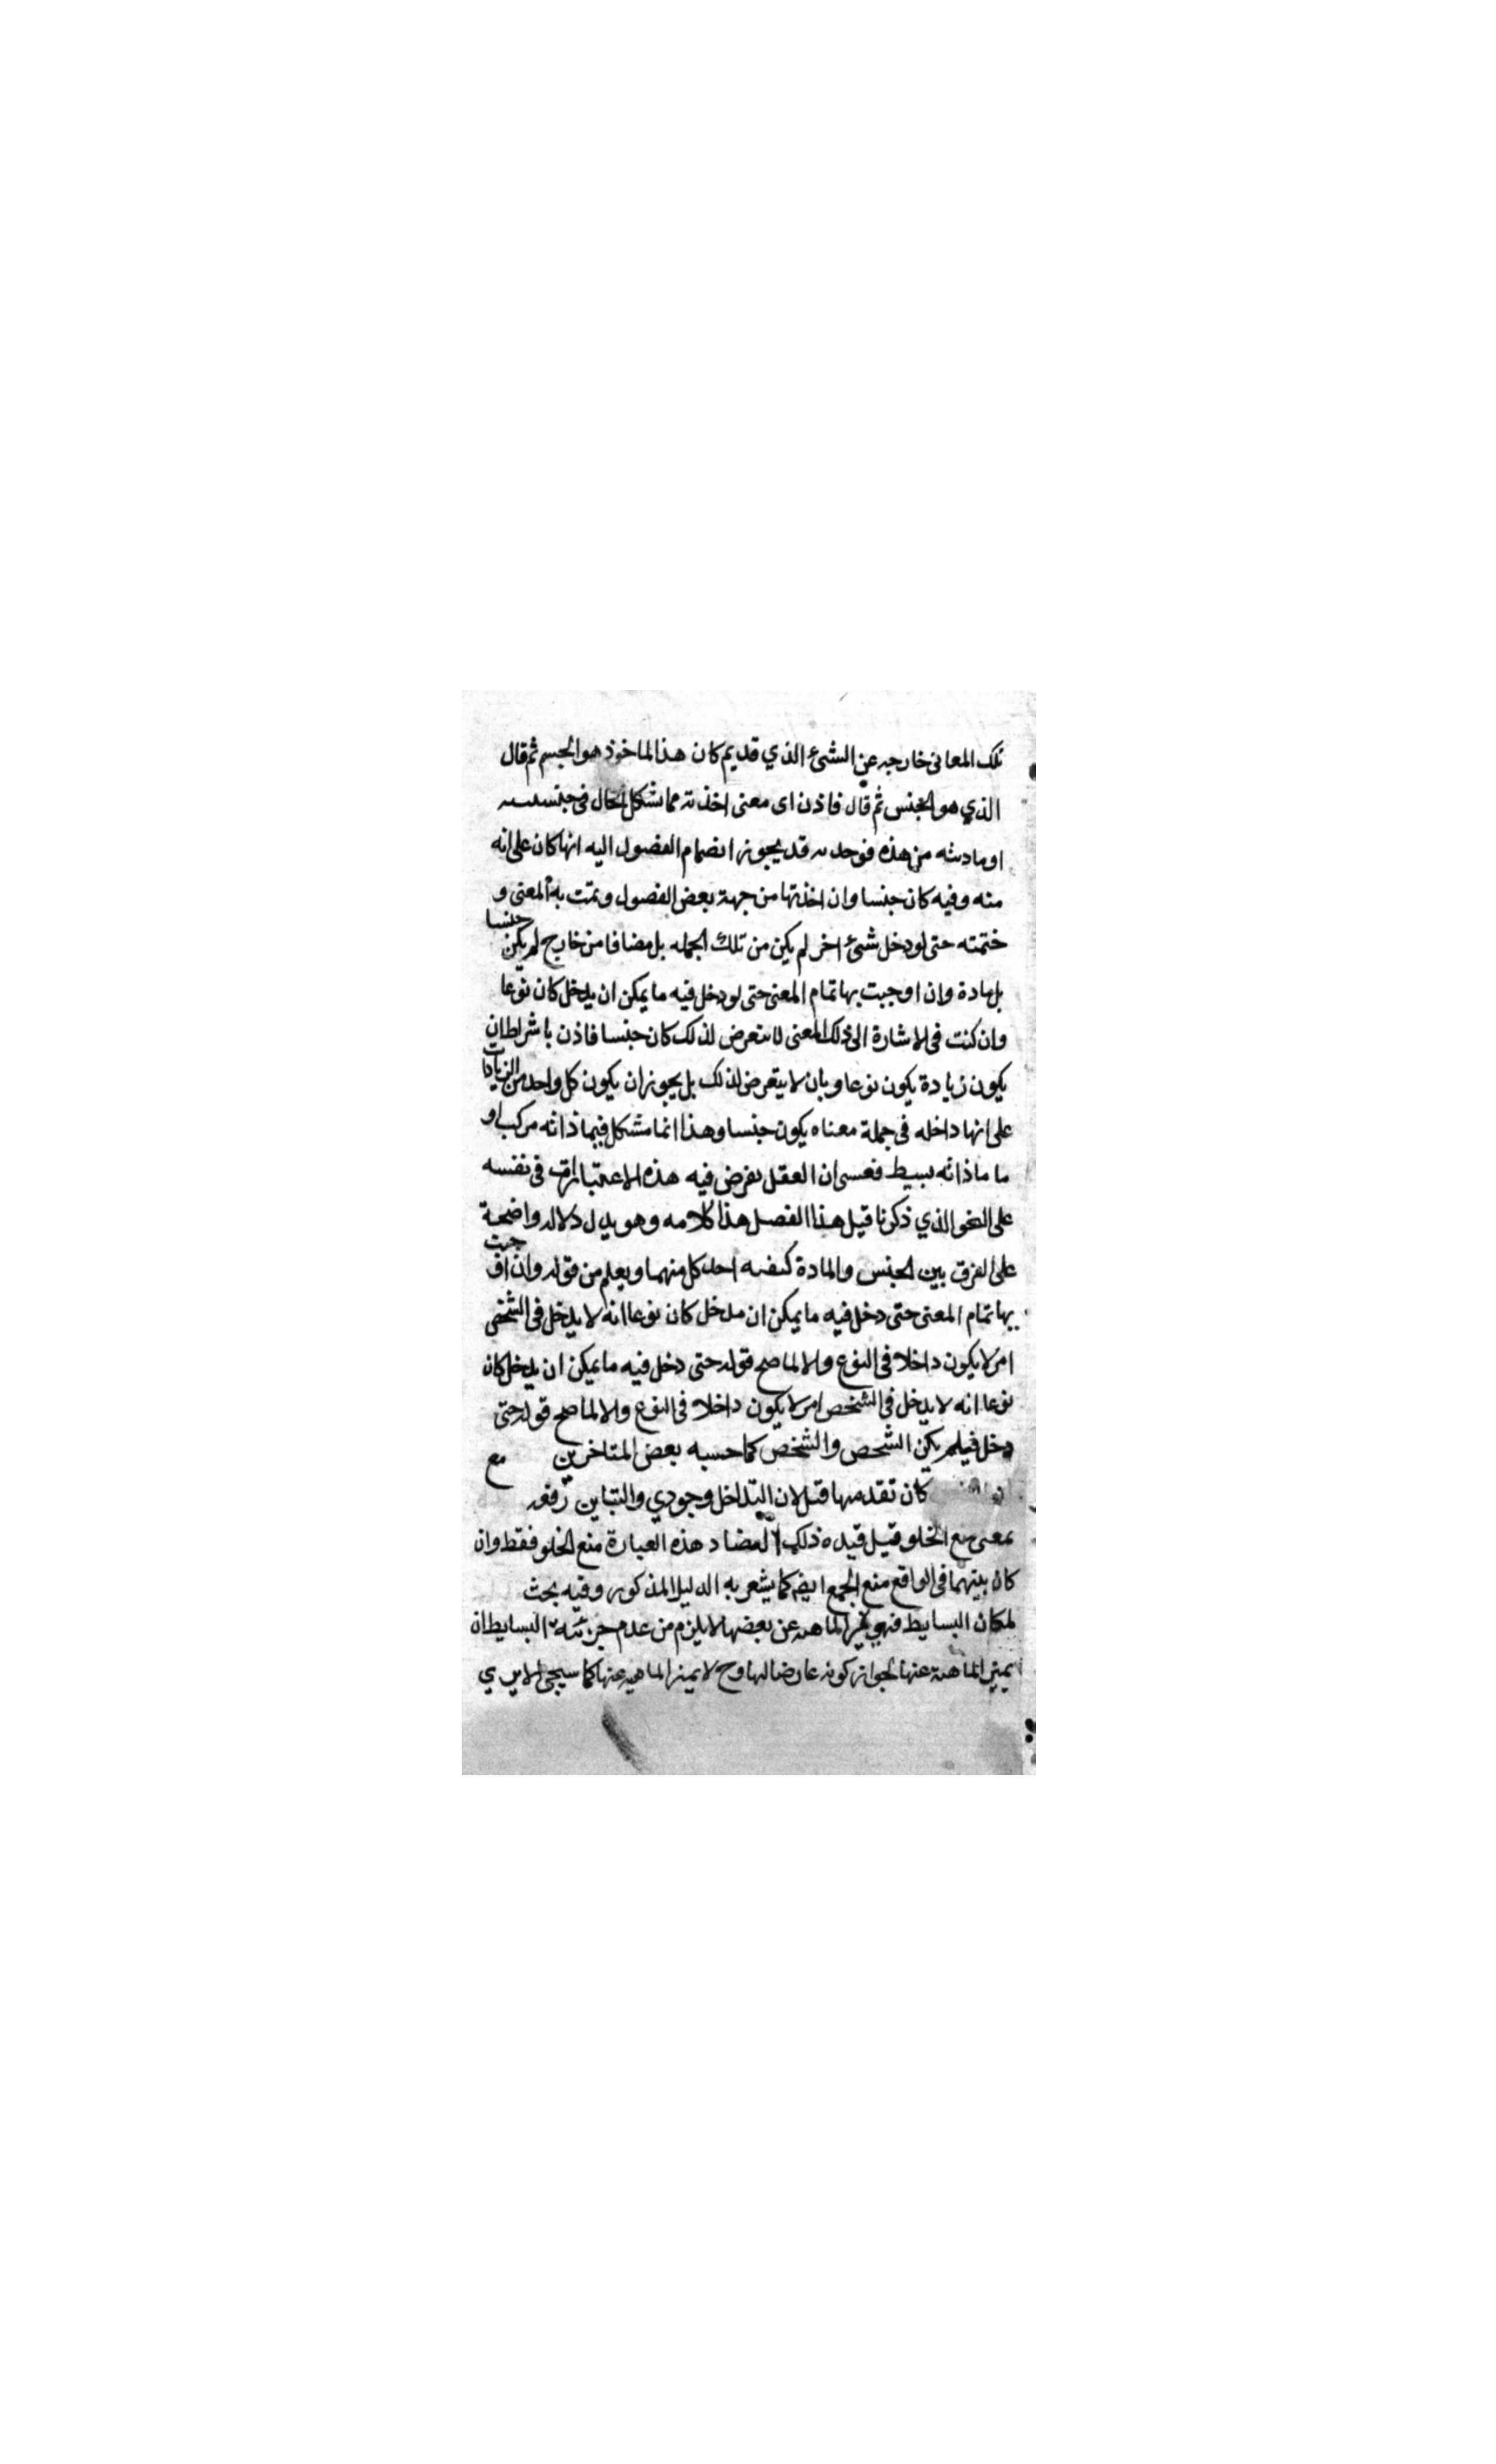 تلك المعانى خارجه عن الشئ الذي قديم كان هذا الماخوذ هو الجسم ثم قال
الذي هو الجنس ثم قال فاذن اى معنى اخذته مما يشكل الحال فى جنسيته
او مادىته من هذه فوجدته قد يجوز انضمام الفصول اليه انها كان على انه
منه وفيه كان جنسا وان اخذتها من جهة بعض الفصول وتمت به المعنى و
ختمته حتى لو دخل شئ اخر لم يكن من تلك الجمله بل مضافا من خارج لم يكن جنسا
بل مادة وان اوجبت بها تمام المعنى حتى لو دخل فيه ما يمكن ان يدخل كان نوعا
وان كنت فى الاشارة الى ذلك المعنى لا تتعرض لذلك كان جنسا فاذن باشراط ان
يكون زيادة يكون نوعا وبان لا يتعرض لذلك بل يجوز ان يكون كل واحد من الزيادات
على انها داخله فى جملة معناه يكون جنسا وهذا انما مشكل فيما ذاته مركب او
ما ما ذاته بسيط فعسى ان العقل يفرض فيه هذه الاعتبارات فى نفسه
على النحو الذي ذكرنا قبل هذا الفصل هذا كلامه وهو يدل دلاله واضحة
على الفرق بين الجنس والمادة كيفيه احد كل منهما ويعلم من قوله وان اوجبت
بها تمام المعنى حتى دخل فيه ما يمكن ان يدخل كان نوعا انه لا يدخل فى الشخص
امر لا يكون داخلا فى النوع والا لما صح قوله حتى دخل فيه ما يمكن ان يدخل كان
نوعا انه لا يدخل فى الشخص امر لا يكون داخلا فى النوع والا لما صح قوله حتى
دخل فيه لم يكن الشحص والشخص كما حسبه بعض المتاخرين مع
كان تقدمها قيل لان التداخل وجودي والتباين رفعه
بمعنى منع الخلو قيل قيده ذلك لان المضاد هذه العبارة منع الخلو فقط وان
كان بينهما فى الواقع منع الجمع ايضا كما يشعر به الدليل المذكور وفيه بحث
لمكان البسايط فهي الماهيه عن بعضها لا يلزم من عدم جزئية البسايط ان
يميز الماهية عنها لجواز كونه عارضا لها وح لا يميز الماهيه عنها كما سيجى